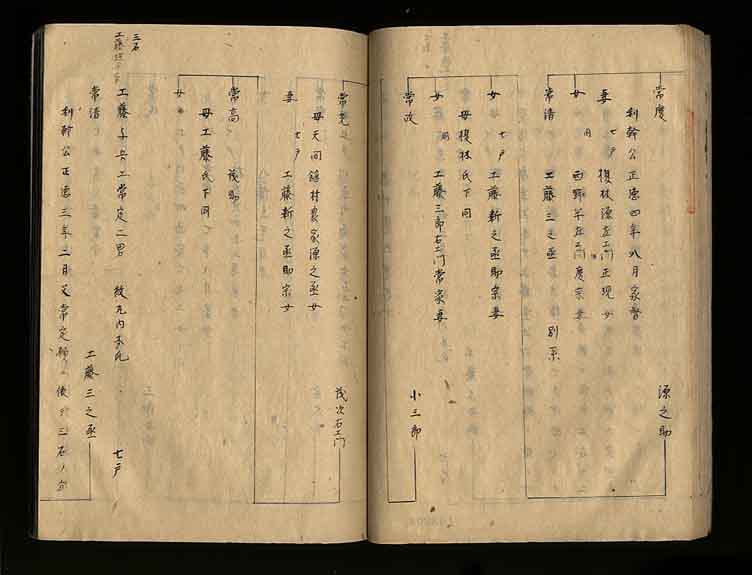 常慶 源之助
利幹公正徳四年八月家督
妻 七戸 榎林源左エ門正現女
女 同 西野半左エ門慶宗妻
常清 工藤三之丞 別系
女 七戸 工藤新之丞助宗妻
母榎林氏下同
女 同 工藤三郎右エ門常家妻
常政 小三郎
常光 茂次右エ門
母天間舘村農家源之丞女
妻 七戸 工藤新之丞助宗女
常高 茂助
母工藤氏下同
女
三石
工藤
工藤 兵エ常定二男 紋丸内 七戸
常清 工藤三之丞
利幹公正徳三年二月父常定 三石ノ